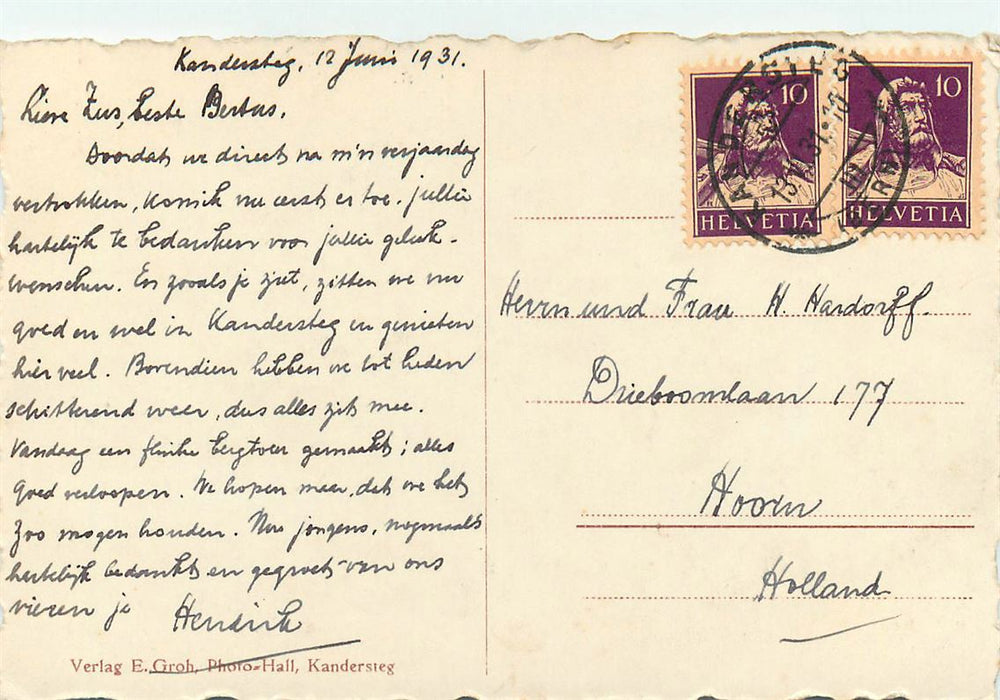 Kandersteg, 12 Juni 1931.
Lieve Zus, beste Bertus,
Doordat we direct na m'n verjaardag
vertrokken, kom ik nu eerst er toe. jullie
hartelijk te bedanken voor jullie geluk-
wenschen. En zooals je ziet, zitten we nu
goed en wel in Kandersteg en genieten
hier veel. Bovendien hebben we tot heden
schitterend weer, dus alles zit mee.
Vandaag een flinke bergtoer gemaakt; alles
goed verloopen. We hopen maar, dat we het
zoo mogen houden. Nu jongens, nogmaals
hartelijk bedankt en gegroet van ons
vieren je Hendrik
Verlag E. Groh, Photo-Hall, Kandersteg
10
HELVETIA
10
HELVETIA
KANDERSTEG
Herrn und Frau H. Hardorff.
Drieboomlaan 177
Hoorn
Holland